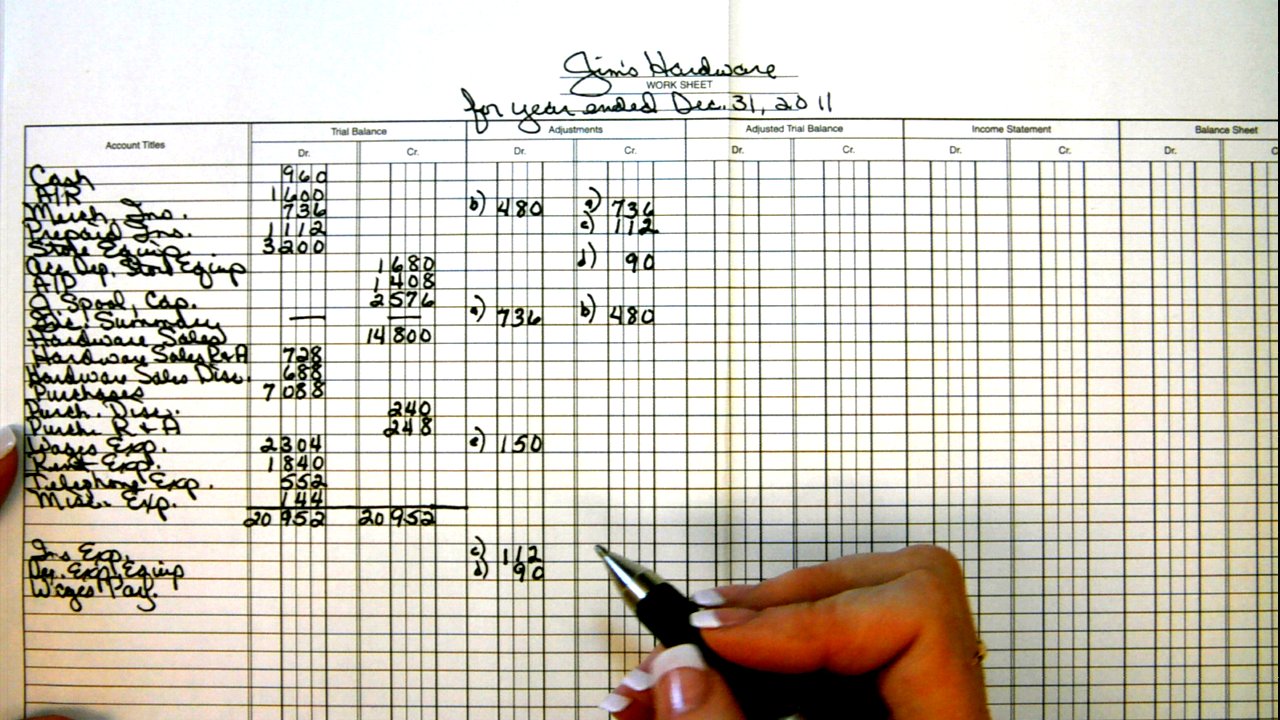 Jim's Hardware
WORK SHEET
for year ended Dec. 31, 2011
Account Titles Trial Balance Adjustments Adjusted Trial Balance Income Statement Balance Sheet
Dr. Cr. Dr. Cr. Dr. Cr. Dr. Cr. Dr. C
Cash 960
A/R 1600
Merch. Ins. 736 b) 480 a) 736
Prepaid Ins. 1112 c) 112
Store Equip. 3200
Acc. Dep. Store Equip 1680 d) 90
A/P 1408
J. Spool, Cap. 2576
Inc. Summary — — a) 736 b) 480
Hardware Sales 14800
Hardware Sales R+A 728
Hardware Sales Disc. 688
Purchases 7088
Purch. Disc. 240
Purch. R+A 248
Wages Exp. 2304 e) 150
Rent Exp. 1840
Telephone Exp. 552
Misc. Exp. 144
20952 20952
Ins Exp. c) 112
Dep. Exp. Equip d) 90
Wages Pay.